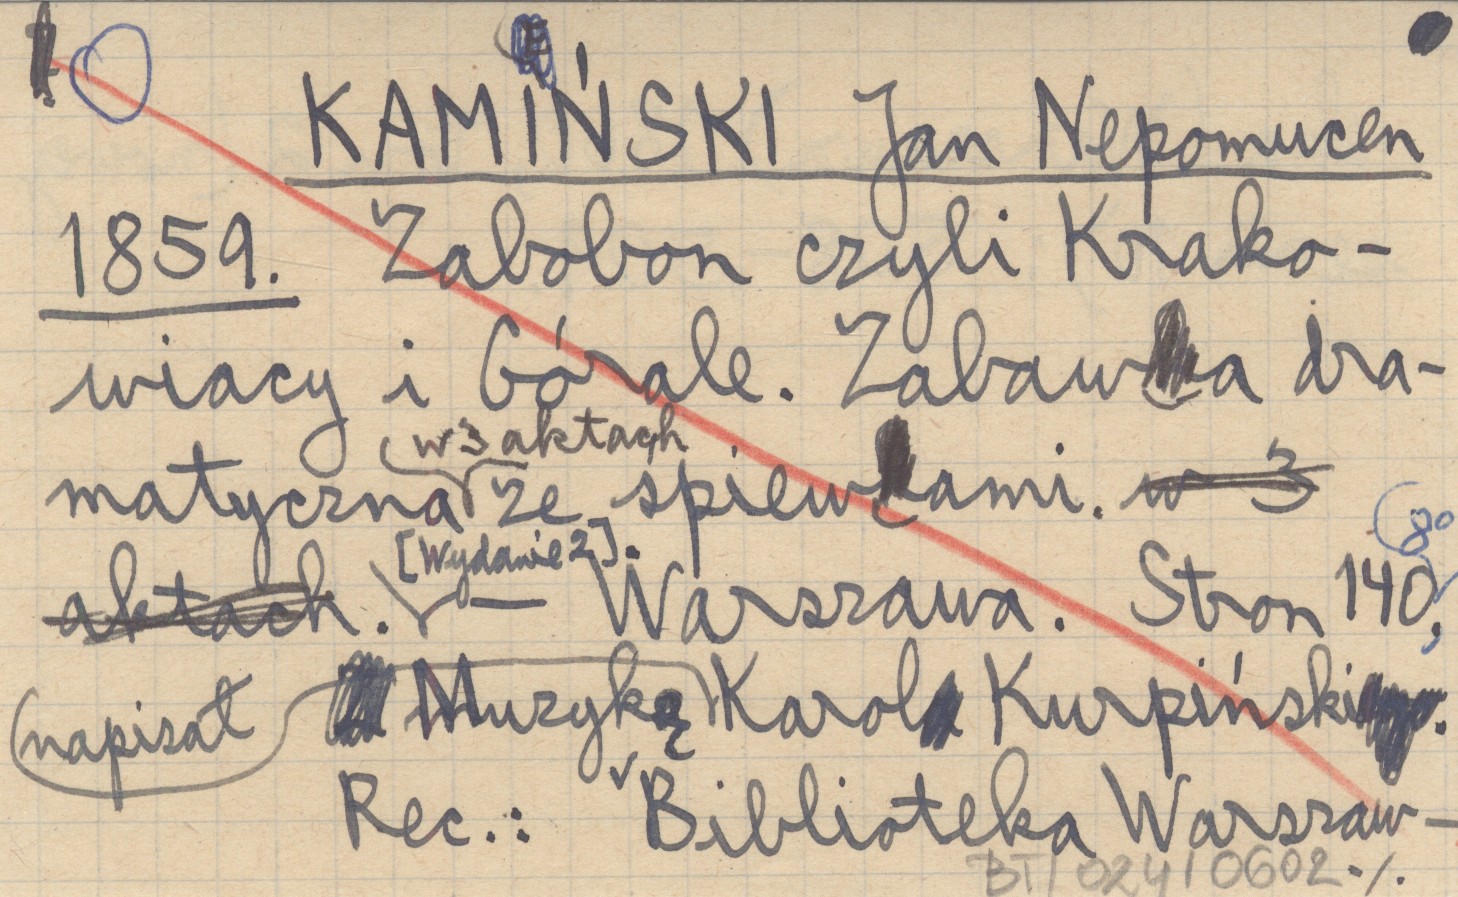 KAMIŃSKI Jan Nepomucen
1859. Zabobon czyli Krako-
wiacy i Górale. Zabawka dra-
w 3 aktach
matyczna ze śpiewkami. w 3
[Wydanie 2].
80
aktach. — Warszawa. Stron 140,
napisał Muzykę Karol Kurpiński.
Rec.: Biblioteka Warszaw-
BT/024/0602 ./.